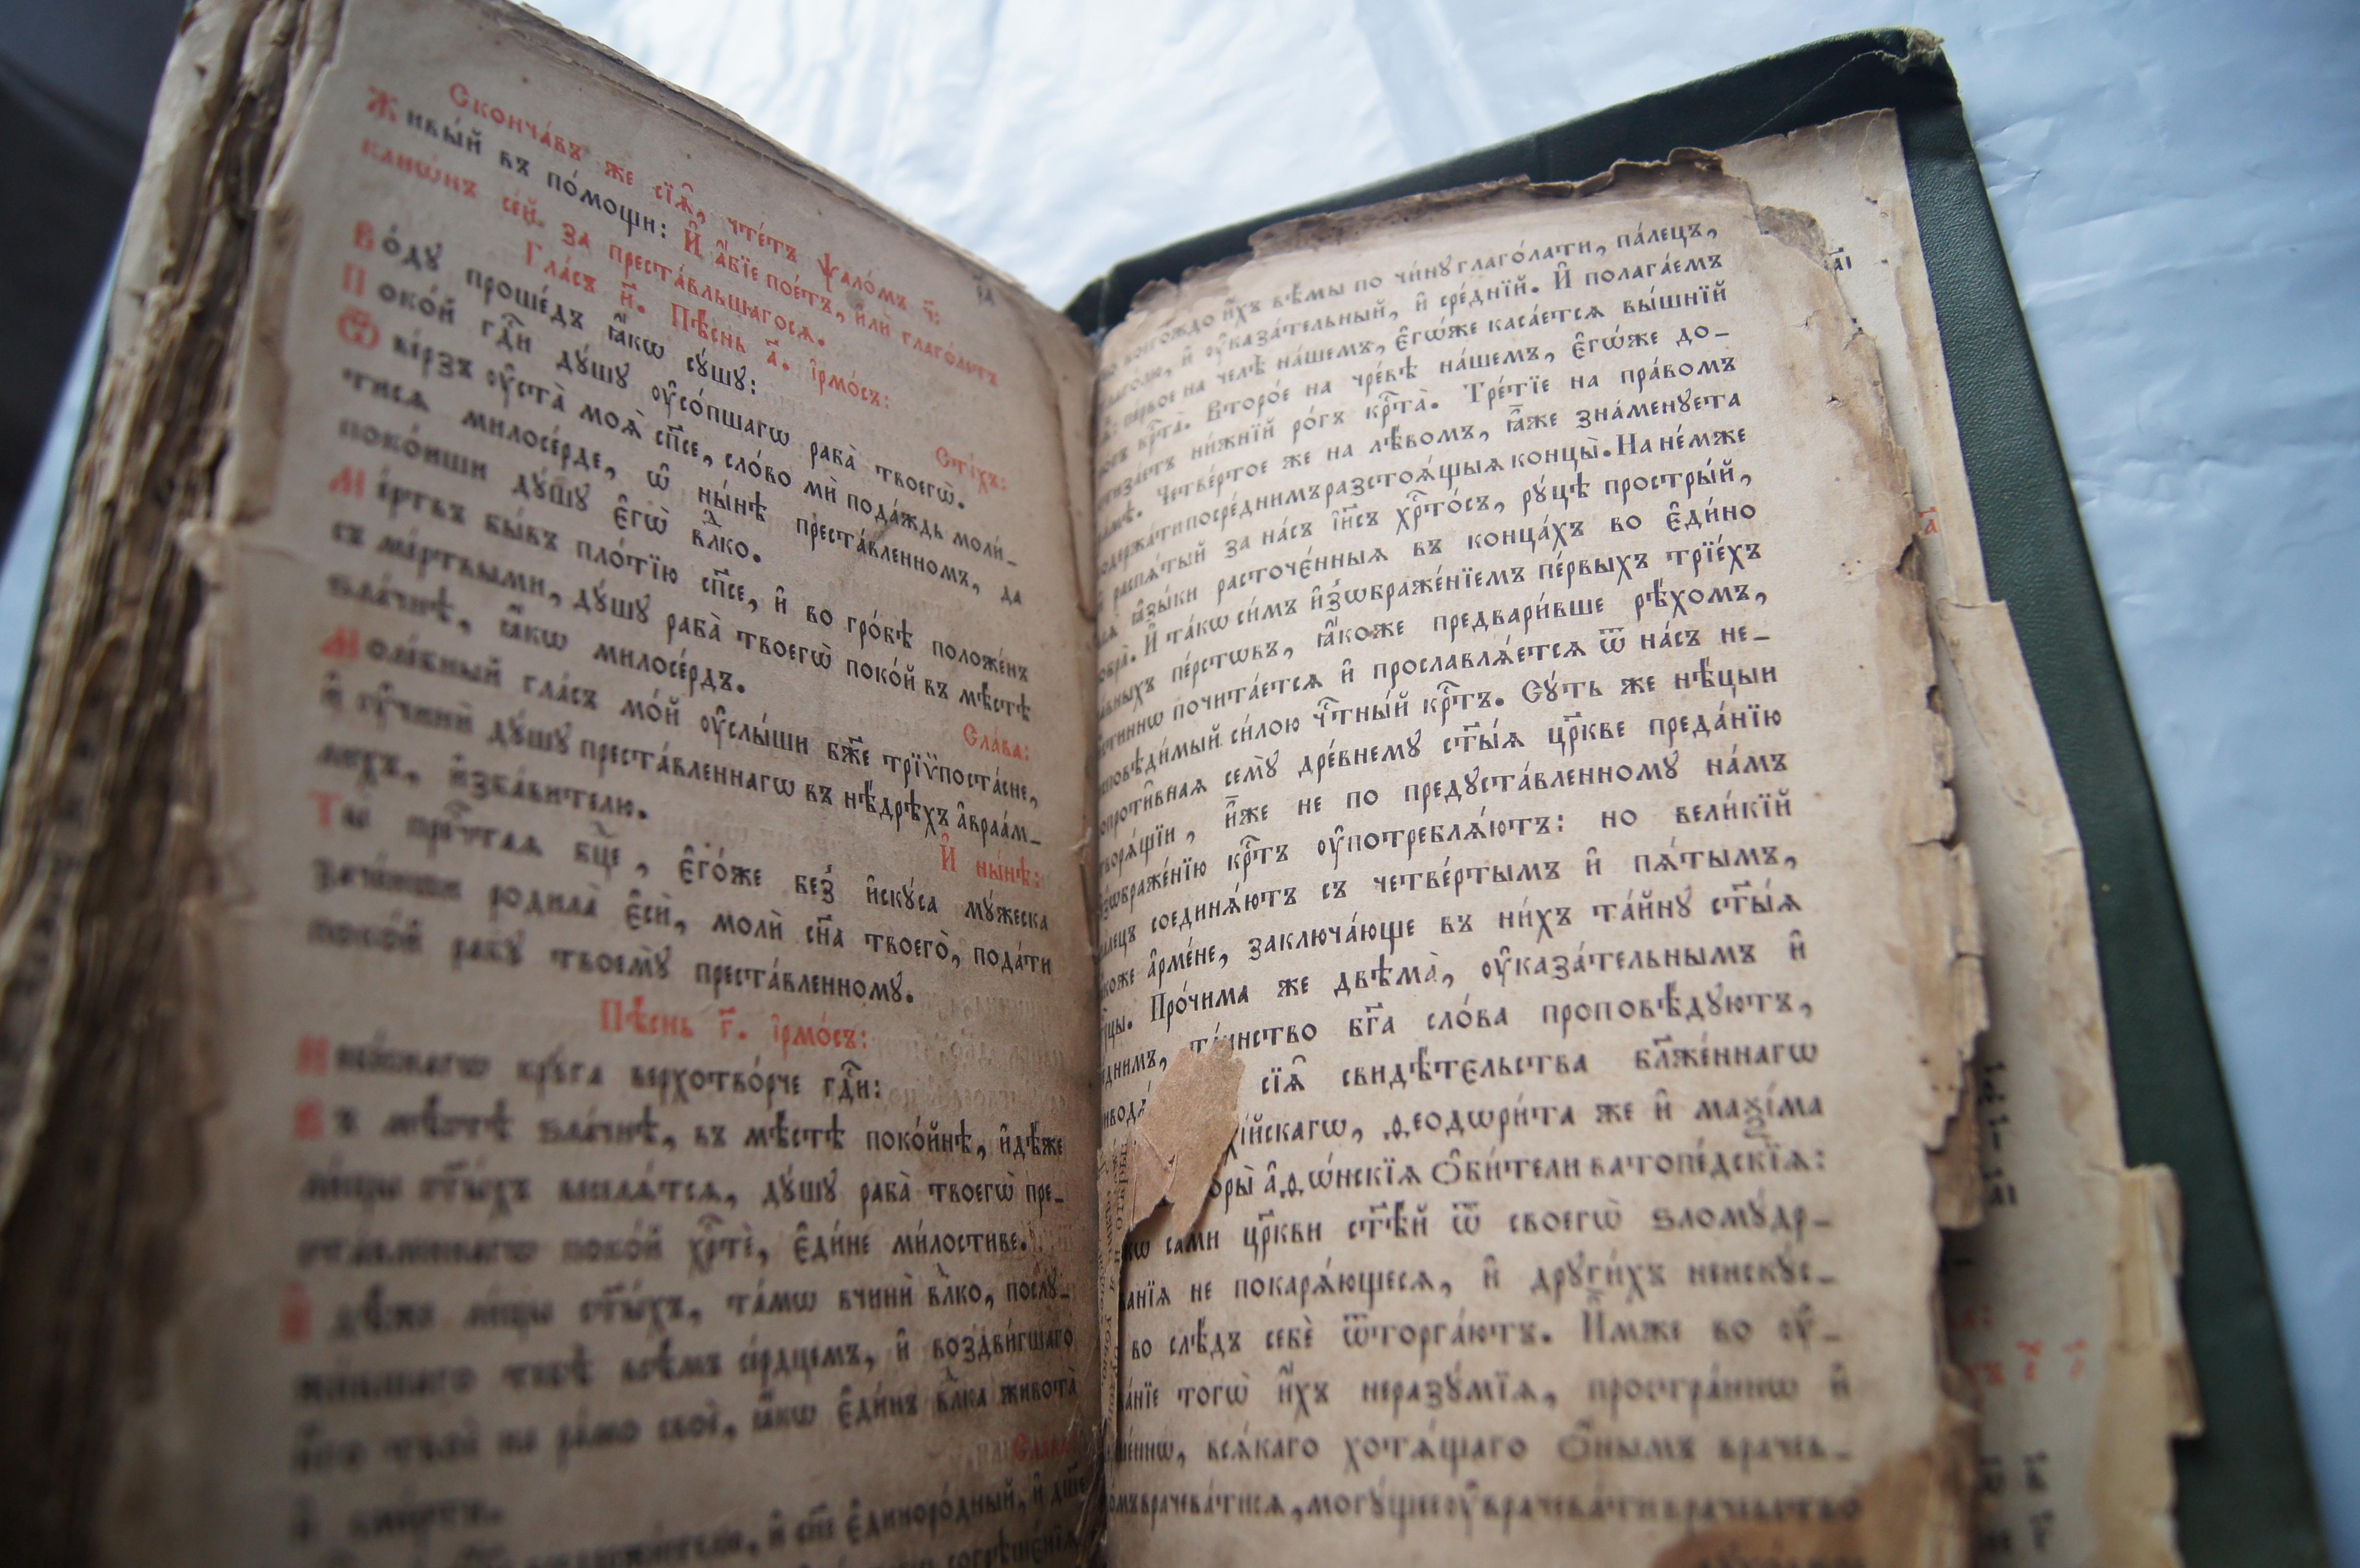 Скончáвъ же сїѧ̑, чтéтъ ѱалóмъ ч҃:
Живы́й въ пóмощи: И҆ а҆́бїе поéтъ, и҆лѝ глагóлетъ
канѡ́нъ сéй. за престáвльшагосѧ.
Глáсъ и҃. Пѣ́снь а҃. і҆рмóсъ:
Вóду прошéдъ ꙗ҆́кѡ сꙋ́шꙋ:
Стíхъ:
Покóй гдⷭ҇и дꙋ́шꙋ ᲂу҆сóпшагѡ рабà твоегѡ̀.
Ѿвéрзъ ᲂу҆стà моѧ̑ сп҃се, слóво мѝ подáждь моли́-
тисѧ милосéрде, ѡ҆ ны́нѣ престáвленномъ, да
покóиши дꙋ́шꙋ є҆гѡ̀ влⷣко.
Мéртвъ бы́въ плóтїю сп҃се, и҆ во грóбѣ положéнъ
съ мéртвыми, дꙋ́шꙋ рабà твоегѡ̀ покóй въ мѣ́стѣ
ѕлáчнѣ, ꙗ҆́кѡ милосéрдъ.
Слáва:
Молéбный глáсъ мóй ᲂу҆слы́ши бж҃е трїѷпостáсне,
и҆ ᲂу҆чинѝ дꙋ́шꙋ престáвленнагѡ въ нѣ́дрѣхъ а҆враáм-
лихъ, и҆збáвителю.
И҆ ны́нѣ:
Ты̀ прⷱ҇таѧ бц҃е, є҆гóже беẓ́ и҆скꙋ́са мꙋ́жеска
зачéнши родилà є҆сѝ, молѝ сн҃а твоегò, подáти
покóй рабꙋ̀ твоемꙋ̀ престáвленномꙋ.
Пѣ́снь г҃. і҆рмóсъ:
Небéснагѡ крꙋ́га верхотвóрче гдⷭ҇и:
Въ мѣ́стѣ ѕлáчнѣ, въ мѣ́стѣ покóйнѣ, и҆дѣ́же
ли́цы ст҃ы́хъ веселѧ́тсѧ, дꙋ́шꙋ рабà твоегѡ̀ пре-
стáвленнагѡ покóй хрⷭ҇тè, є҆ди́не ми́лостиве.
И҆дѣ́же ли́цы ст҃ы́хъ, тáмѡ вчинѝ влⷣко, послꙋ-
жи́вшаго тебѣ̀ всѣ́мъ сéрдцемъ, и҆ воздви́гшаго
и҆́го твоѐ на рáмо своѐ, ꙗ҆́кѡ є҆ди́нъ влⷣка животà
и҆ смéрти.
Слáва
є҆динорóдный, и҆ дш҃е
согрѣшéнїѧ
и҆́хъ вѣ́мы по чи́нꙋ глагóлати, пáлецъ,
и҆ ᲂу҆казáтельный, и҆ срéднїй. И҆ полагáемъ
пéрвое на челѣ̀ нáшемъ, є҆гѡ́же касáетсѧ вы́шнїй
крⷭ҇тà. Второ́е на чрéвѣ нáшемъ, є҆гѡ́же до-
ни́жнїй рóгъ крⷭ҇тà. Трéтїе на прáвомъ
Четвéртое же на лѣ́вомъ, ꙗ҆̀же знáменꙋета
посрéднимъ разстоѧ́щыѧ концы̀. На нéмже
распѧ́тый за нáсъ і҆и҃съ хрⷭ҇тóсъ, рꙋ́цѣ простры́й,
ꙗ҆зы́ки расточéнныѧ въ концáхъ во є҆ди́но
И҆ тáкѡ си́мъ и҆зѡбражéнїемъ пéрвыхъ трїéхъ
пéрстѡвъ, ꙗ҆́коже предвари́вше рѣ́хомъ,
почитáетсѧ и҆ прославлѧ́етсѧ ѿ нáсъ не-
повѣди́мый си́лою чⷭ҇тны́й крⷭ҇тъ. Сꙋ́ть же нѣ́цыи
проти́внаѧ семꙋ̀ дрéвнемꙋ ст҃ы́ѧ цр҃кве предáнїю
творѧ́щїи, и҆̀же не по предꙋстáвленномꙋ нáмъ
и҆зѡбражéнїю крⷭ҇тъ ᲂу҆потреблѧ́ютъ: но вели́кїй
пáлецъ соединѧ́ютъ съ четвéртымъ и҆ пѧ́тымъ,
ꙗ҆́коже а҆рмéне, заключáюще въ ни́хъ тáйнꙋ ст҃ы́ѧ
Прóчима же двѣмà, ᲂу҆казáтельнымъ и҆
срéднимъ, тáинство бг҃а слóва проповѣ́дꙋютъ,
сїѧ̑ свидѣ́тельства бл҃жéннагѡ
ѳеодѡри́та же и҆ маѯíма
а҆ѳѡ́нскїѧ ѻ҆би́тели ватопéдскїѧ:
сáми цр҃кви ст҃ѣ́й ѿ своегѡ̀ ѕломꙋ́др-
не покарѧ́ющесѧ, и҆ дрꙋги́хъ неискꙋ́с-
во слѣ́дъ себѐ ѿторгáютъ. И҆́мже во ᲂу҆-
тогѡ̀ и҆́хъ неразꙋ́мїѧ, прострáннѡ и҆
всѧ́каго хотѧ́щаго ѻ҆́нымъ врачев-
врачевáтисѧ, могꙋ́щее ᲂу҆врачевáти врачевство